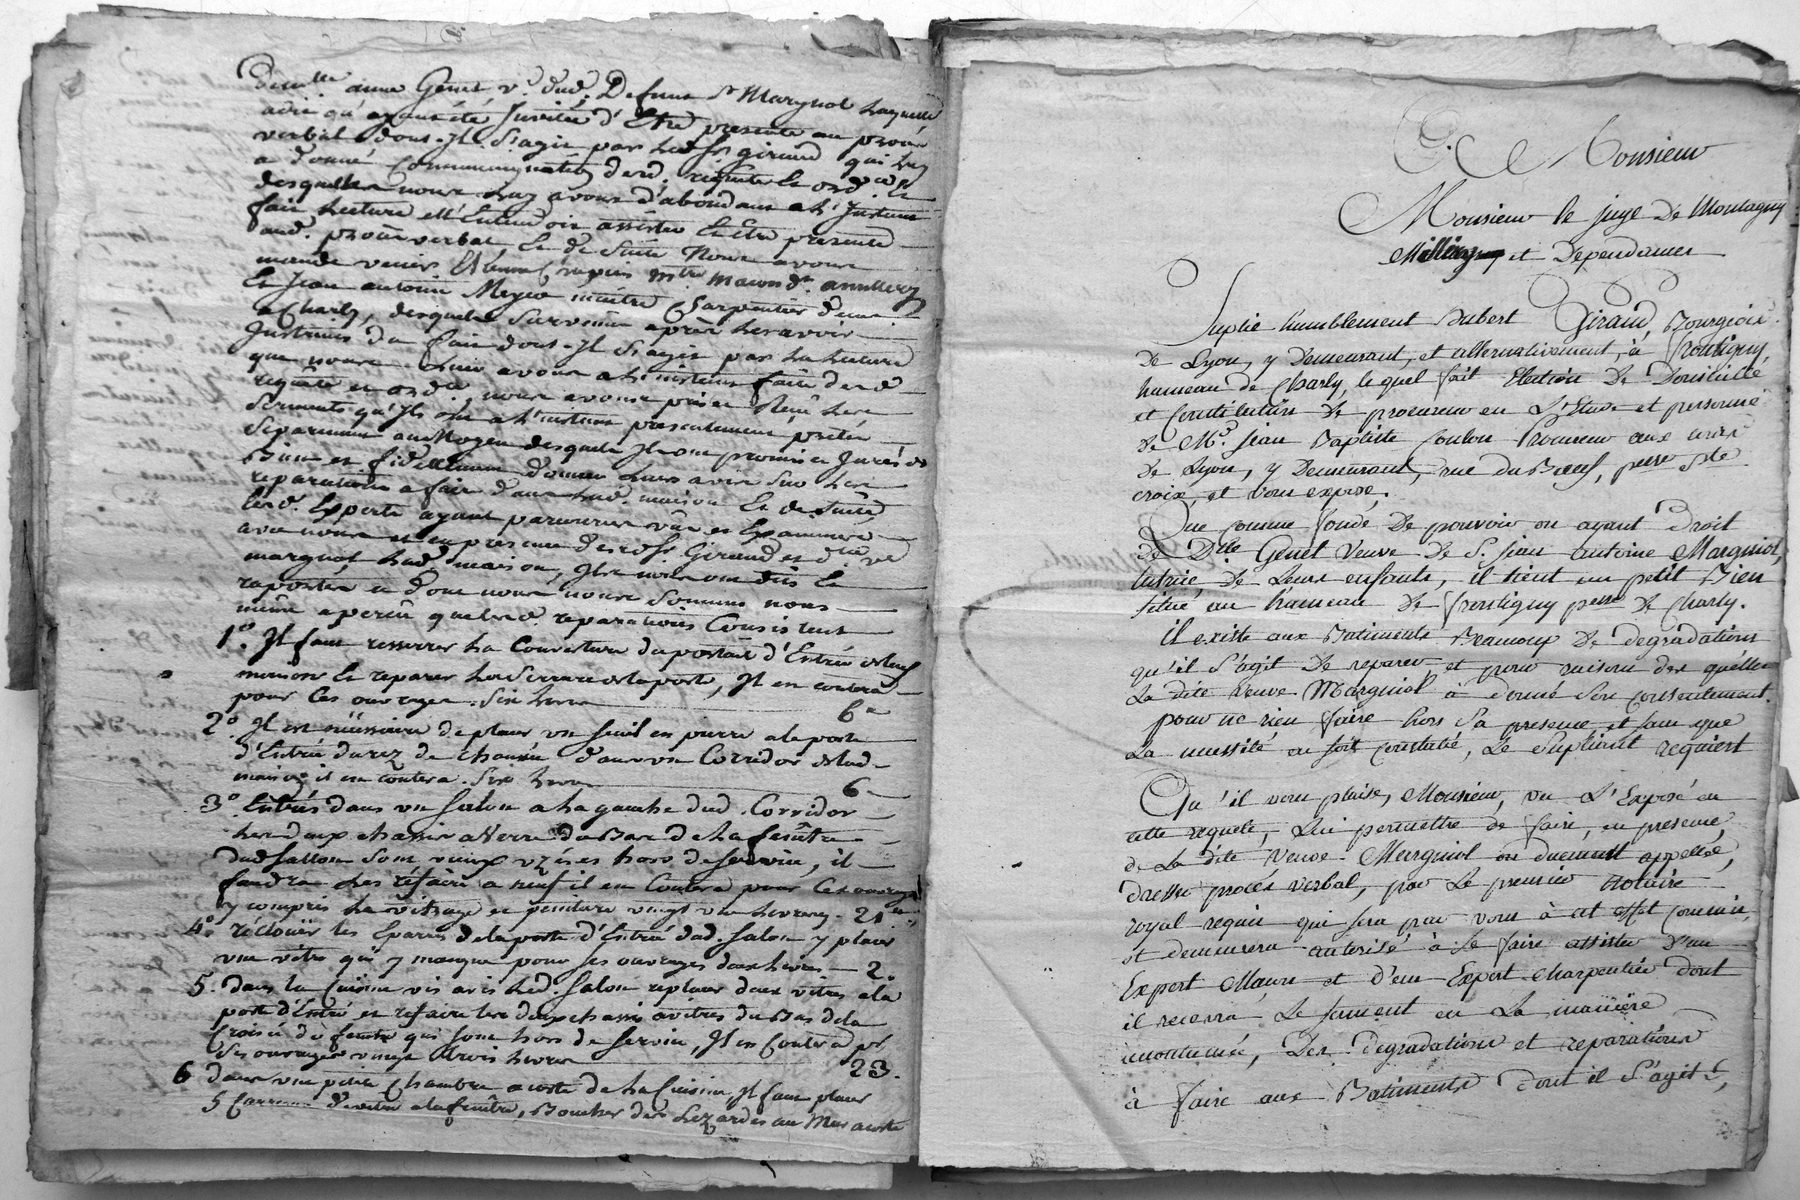 Demlle. anne Genet v.e dud. Defunt Sr Margnol Laquelle
verbal dont Il S'agit par Led Sr giraud qui Luy
a donné Communication desd. requete et ordce. Et
desquelles nous Luy avons d'abondant a L'Instant
fait Lecture et L'Entendoir assister Et Etre presente
aud. procès verbal Et de Suite Nous avons
mandé venir maitre Macon dt.
Et Jean antoine Meyer maitre Charpentier demt.
a Charly, Lesquels Survenus après Les avoir
Instruits du fait dont Il S'agit par La Lecture
que nous Leur avons a L'instant faite desd.
requête et ordce, nous avons pris et Reçu Leur
Serments qu'Ils ont a L'instant presentement prêtés
Séparement au Moyen desquels Ils ont promis et Jurés de
Bien et fidellement donner Leurs avis Sur Les
reparations a faire dans Lad. maison Et de Suite,
Lesd. Experts ayant parcourus vûs et Examinés
avec nous et en présence desd. Sr Giraud et d. ve
margnol, Lad. maison, Ils nous ont dits Et
raportés et dont nous nous Sommes nous
même aperçû que Lesd. reparations Consistent
1.° Il faut resserrer La Couverture du portail d'Entrée de Lad.
maison Et reparer La Serrure de La porte, Il en coutera
pour Ces ouvrages Six Livres 6
2.° Il est nécéssaire de placer un Seuil en pierre a la porte
d'Entrée du rez de chaussée dans un Corridor de Lad.
maison il en coutera Six Livres 6
3.° Entrés dans un Salon a La gauche dud. Corridor
Les deux chassis a Verre du Bas de La fenêtre
dud Sallon Sont vieux uzés et hors de Service, il
faudra Les réfaire a neuf il en Coutera pour Ces ouvrages
y compris Le vitrage et peinture vingt une Livres 21
4.° réclouër les Eparres de la porte d'Entrée dud. Salon y placer
une vitre qui y manque pour Ses ouvrages deux Livres 2.
5. dans la Cuisine vis avis Led. Salon replacer deux vitres a la
porte d'Entrée et refaire Les deux chassis a vitres du Bas de la
Croisée de fenêtre qui Sont hors de Service, Il en Coutera pr.
Ses ouvrages vingt trois Livres 23.
6 dans une petite Chambre a coté de La Cuisine Il faut placer
5 Carreaux de vitre a la fenêtre, Boucher des Lezardes au Mur a coté
A Monsieur
Monsieur le juge de Montagny
Millery et Dependances
Suplie humblement Hubert Giraud, Bourgeois
de Lyon, y demeurant, et alternativement, à Frontigny,
hameau de Charly, lequel fait Election de Domicille
et Constitution de procureur en L'Etude et personne
de Me. Jean Baptiste Coulon Procureur aux cours
de Lyon, y Demeurant, rue du Boeuf, psse Ste
croix, et vous expose,
Que comme fondé de pouvoir ou ayant droit
de Dlle Genet Veuve de S. jean antoine Margniol,
tutrice de Leurs enfants, il tient un petit Bien
situé au hameau de frontigny psse de Charly.
il existe aux Batiments Beaucoup de degradations
qu'il S'agit de reparer et pour raison des quélles
La dite Veuve Margniol à donné Son consentement.
pour ne rien faire hors Sa presence et sans que
La necessité en soit constatée, Le Supliant requiert
Qu'il vous plaise, Monsieur, vu L'Exposé en
cette requete, Lui permettre de faire, en presence,
de La dite Veuve Margniol ou duement appellée,
dresser procès verbal, par Le premier notaire
royal requis qui sera par vous à cet effet commis,
et demeurera autorisé à se faire assister d'un
Expert Macon et d'un Expert Charpentier dont
il recevra Le serment en La manière
accoutumée, Des degradations et reparations
à faire aux Batiments dont il S'agit,